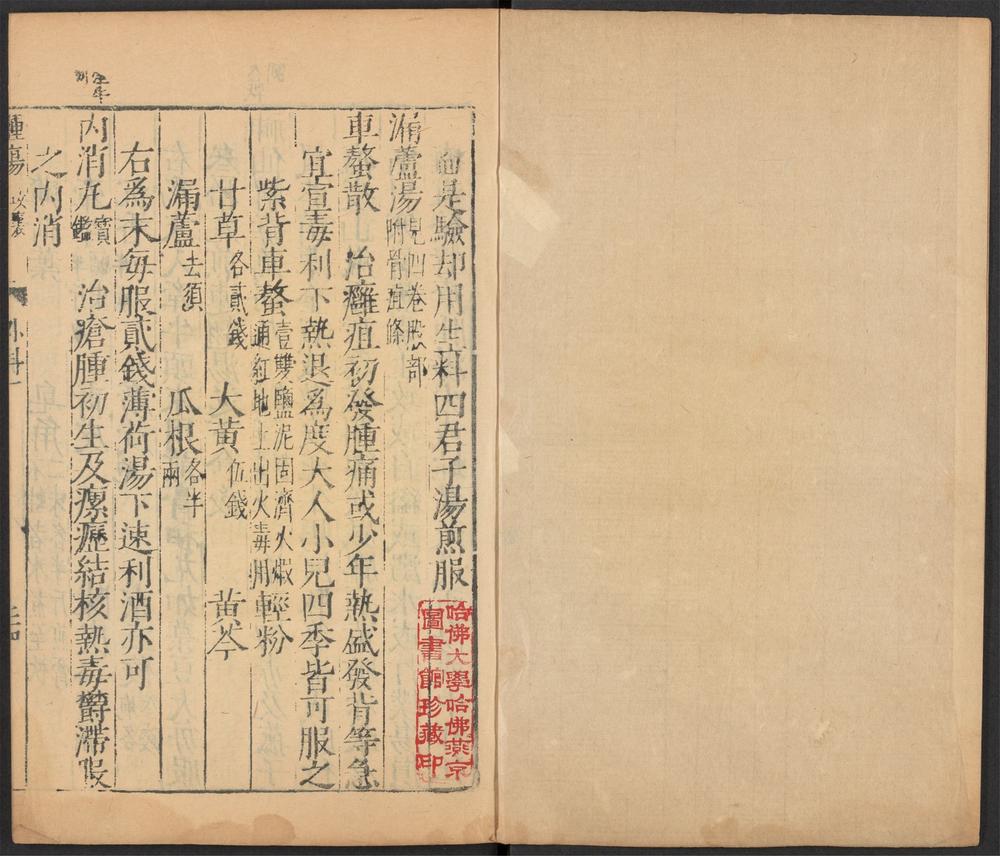 血是驗却用生料四君子湯煎服
漏蘆湯見四卷股部附骨疽條
車螯散 治癰疽初發腫痛或少年熱盛發背等急
宜宣毒利下熱退為度大人小兒四季皆可服之
紫背車螯壹雙鹽泥固濟火煅通紅地上出火毒用輕粉
甘草各貳錢 大黃伍錢 黃芩
漏蘆去須 瓜根各半兩
右為末每服貳錢薄荷湯下速利酒亦可
內消丸寶鑑 治瘡腫初生及瘰癧結核熱毒欝滯服
之內消
腫瘍 攻裏 外科一
哈佛大學哈佛燕京
圖書館珍藏印